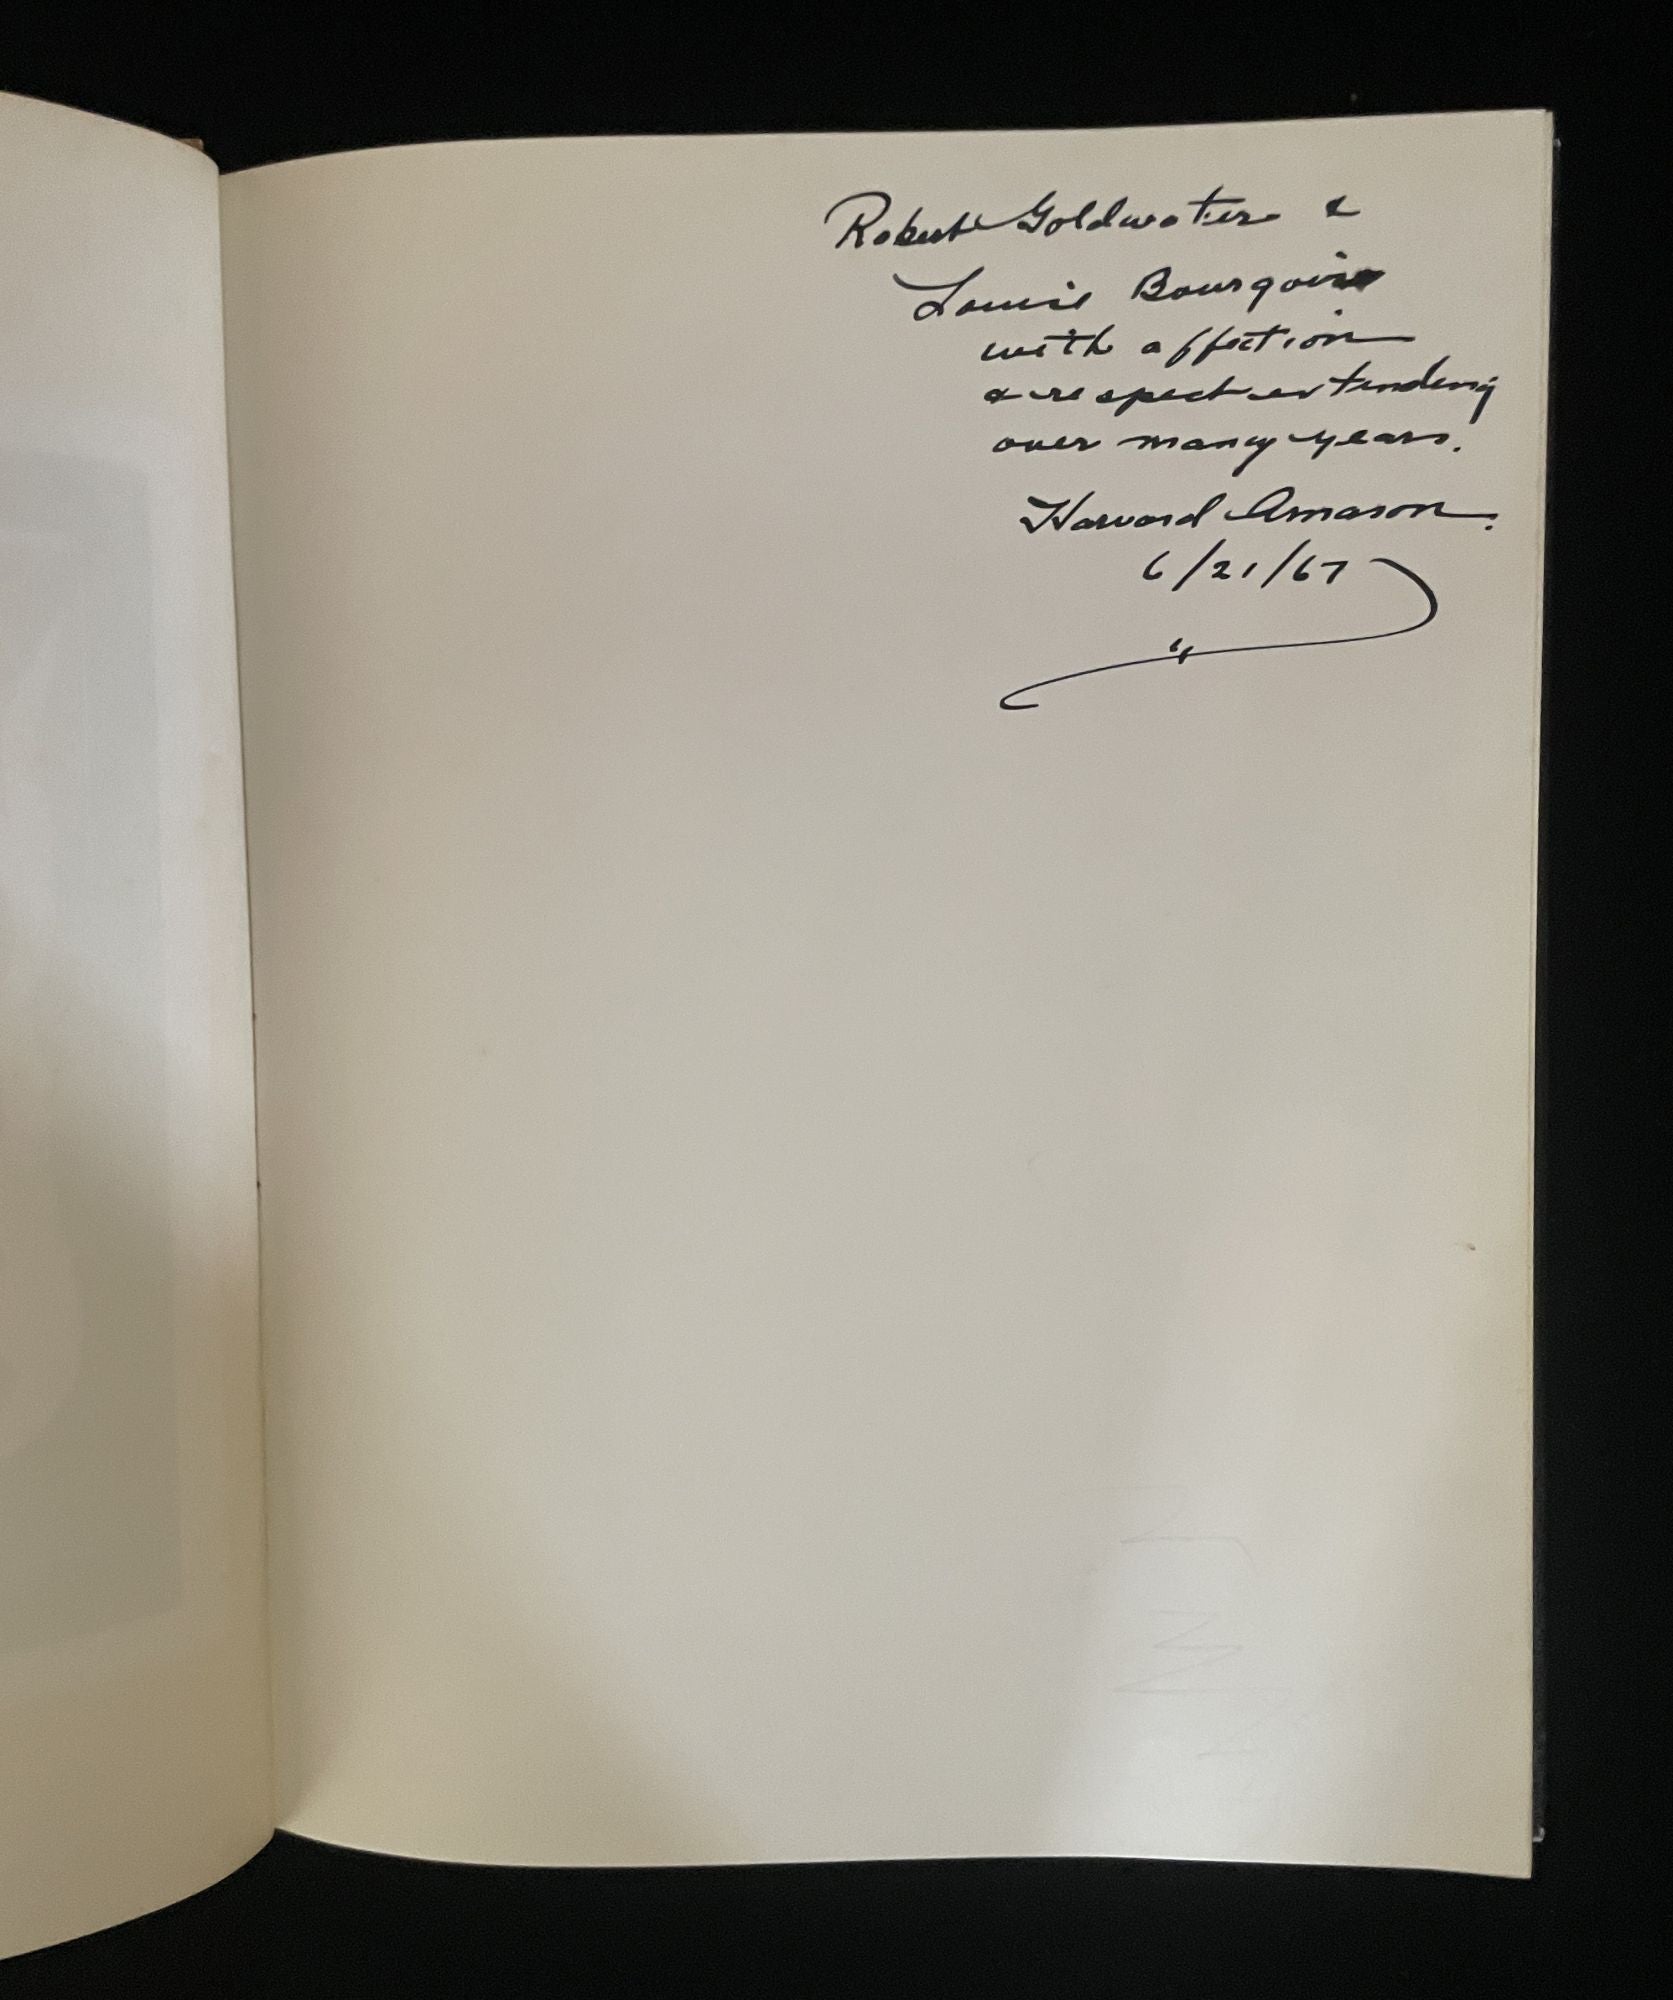 Robert Goldwater &
Louise Bourgois
with affection
& respect extending
over many years.
Harvard Arnason.
6/21/67